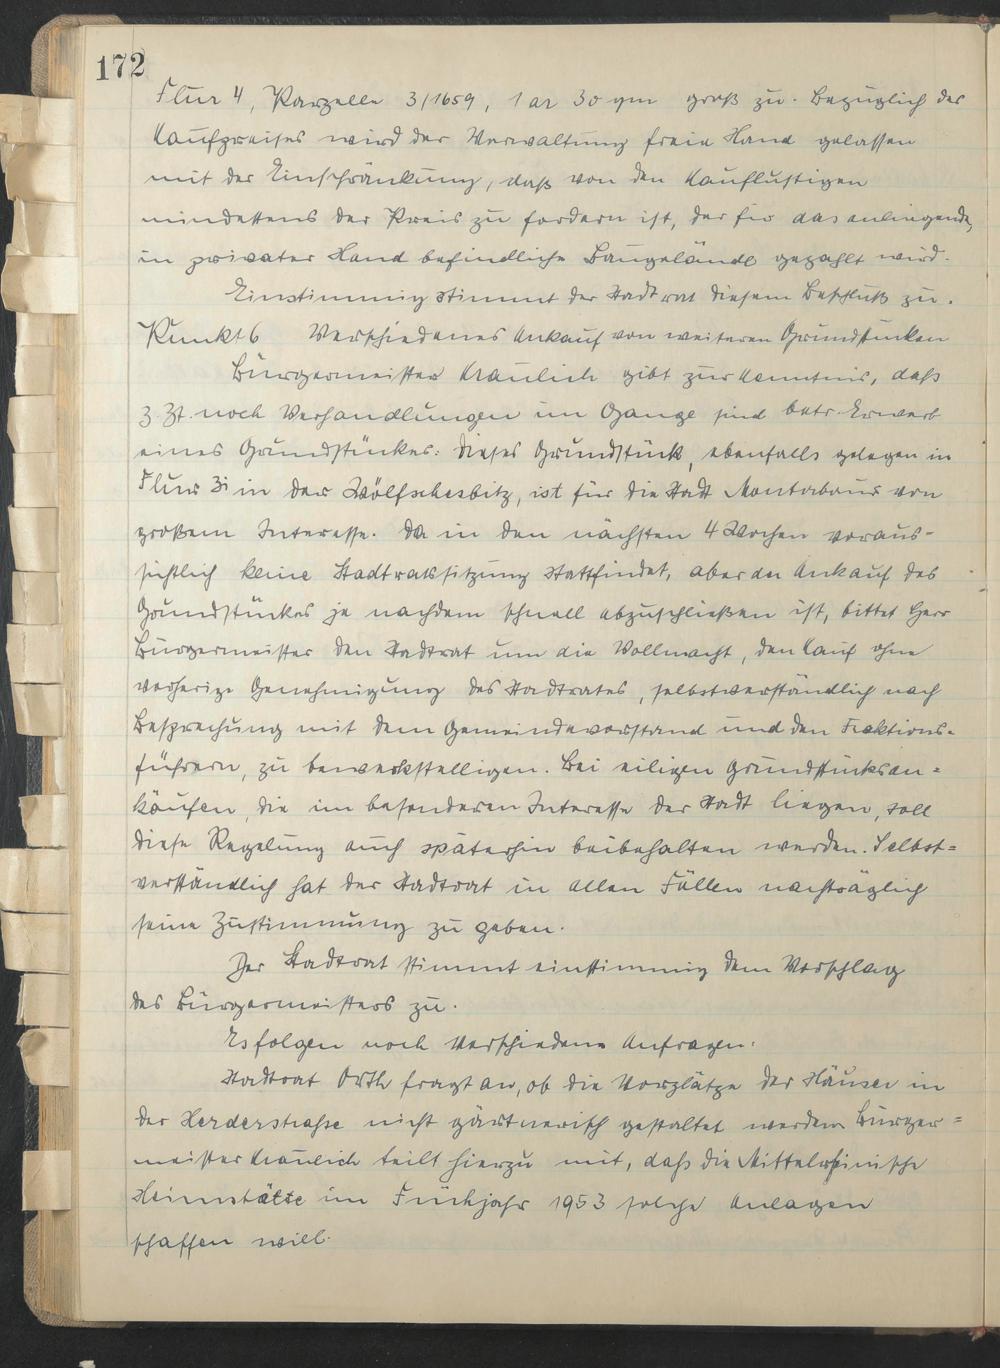 172
Flur 4, Parzelle 3/1659, 1 ar 30 qm groß zu. Bezüglich des
Kaufpreises wird der Verwaltung freie Hand gelassen
mit der Einschränkung, daß von den Kauflustigen
mindestens der Preis zu fordern ist, der für das anliegende,
in privater Hand befindliche Baugelände gezahlt wird.
Einstimmig stimmt der Stadtrat diesem Beschluß zu.
Punkt 6 Verschiedenes Ankauf von weiteren Grundstücken
Bürgermeister Kraulich gibt zur Kenntnis, daß
z. Zt. noch Verhandlungen im Gange sind betr. Erwerb
eines Grundstückes. Dieses Grundstück, ebenfalls gelegen in
Flur 31 in der Wölfschesbitz, ist für die Stadt Montabaur von
großem Interesse. Da in den nächsten 4 Wochen voraus-
sichtlich keine Stadtratssitzung stattfindet, aber der Ankauf des
Grundstückes je nachdem schnell abzuschließen ist, bittet Herr
Bürgermeister den Stadtrat um die Vollmacht, den Kauf ohne
vorherige Genehmigung des Stadtrates, selbstverständlich nach
Besprechung mit dem Gemeindevorstand und den Fraktions-
führern, zu bewerkstelligen. Bei eiligen Grundstücksan=
käufen, die im besonderen Interesse der Stadt liegen, soll
diese Regelung auch späterhin beibehalten werden. Selbst=
verständlich hat der Stadtrat in allen Fällen nachträglich
seine Zustimmung zu geben.
Der Stadtrat stimmt einstimmig dem Vorschlag
des Bürgermeisters zu.
Es folgen noch verschiedene Anfragen.
Stadtrat Orth fragt an, ob die Vorplätze der Häuser in
der Herderstraße nicht gärtnerisch gestaltet werden. Bürger=
meister Kraulich teilt hierzu mit, daß die Mittelrheinische
Heimstätte im Frühjahr 1953 solche Anlagen
schaffen will.